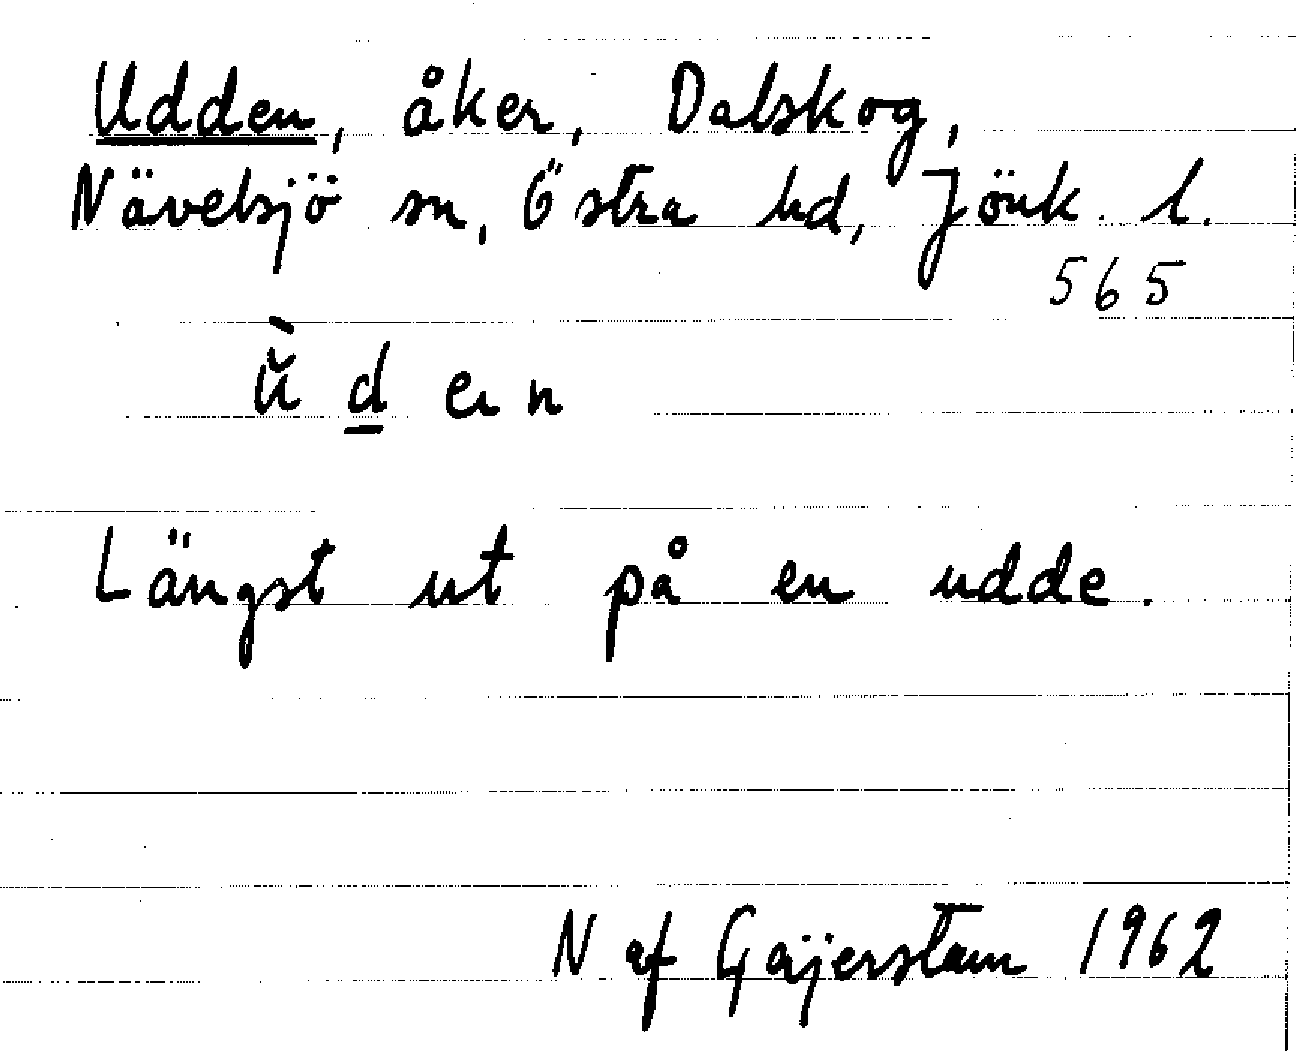 Udden, åker, Dalskog,
Nävelsjö sn, Östra hd, Jönk. l.
565
ù̆ d̲ en
Längst ut på en udde.
N af Geijerstam 1962